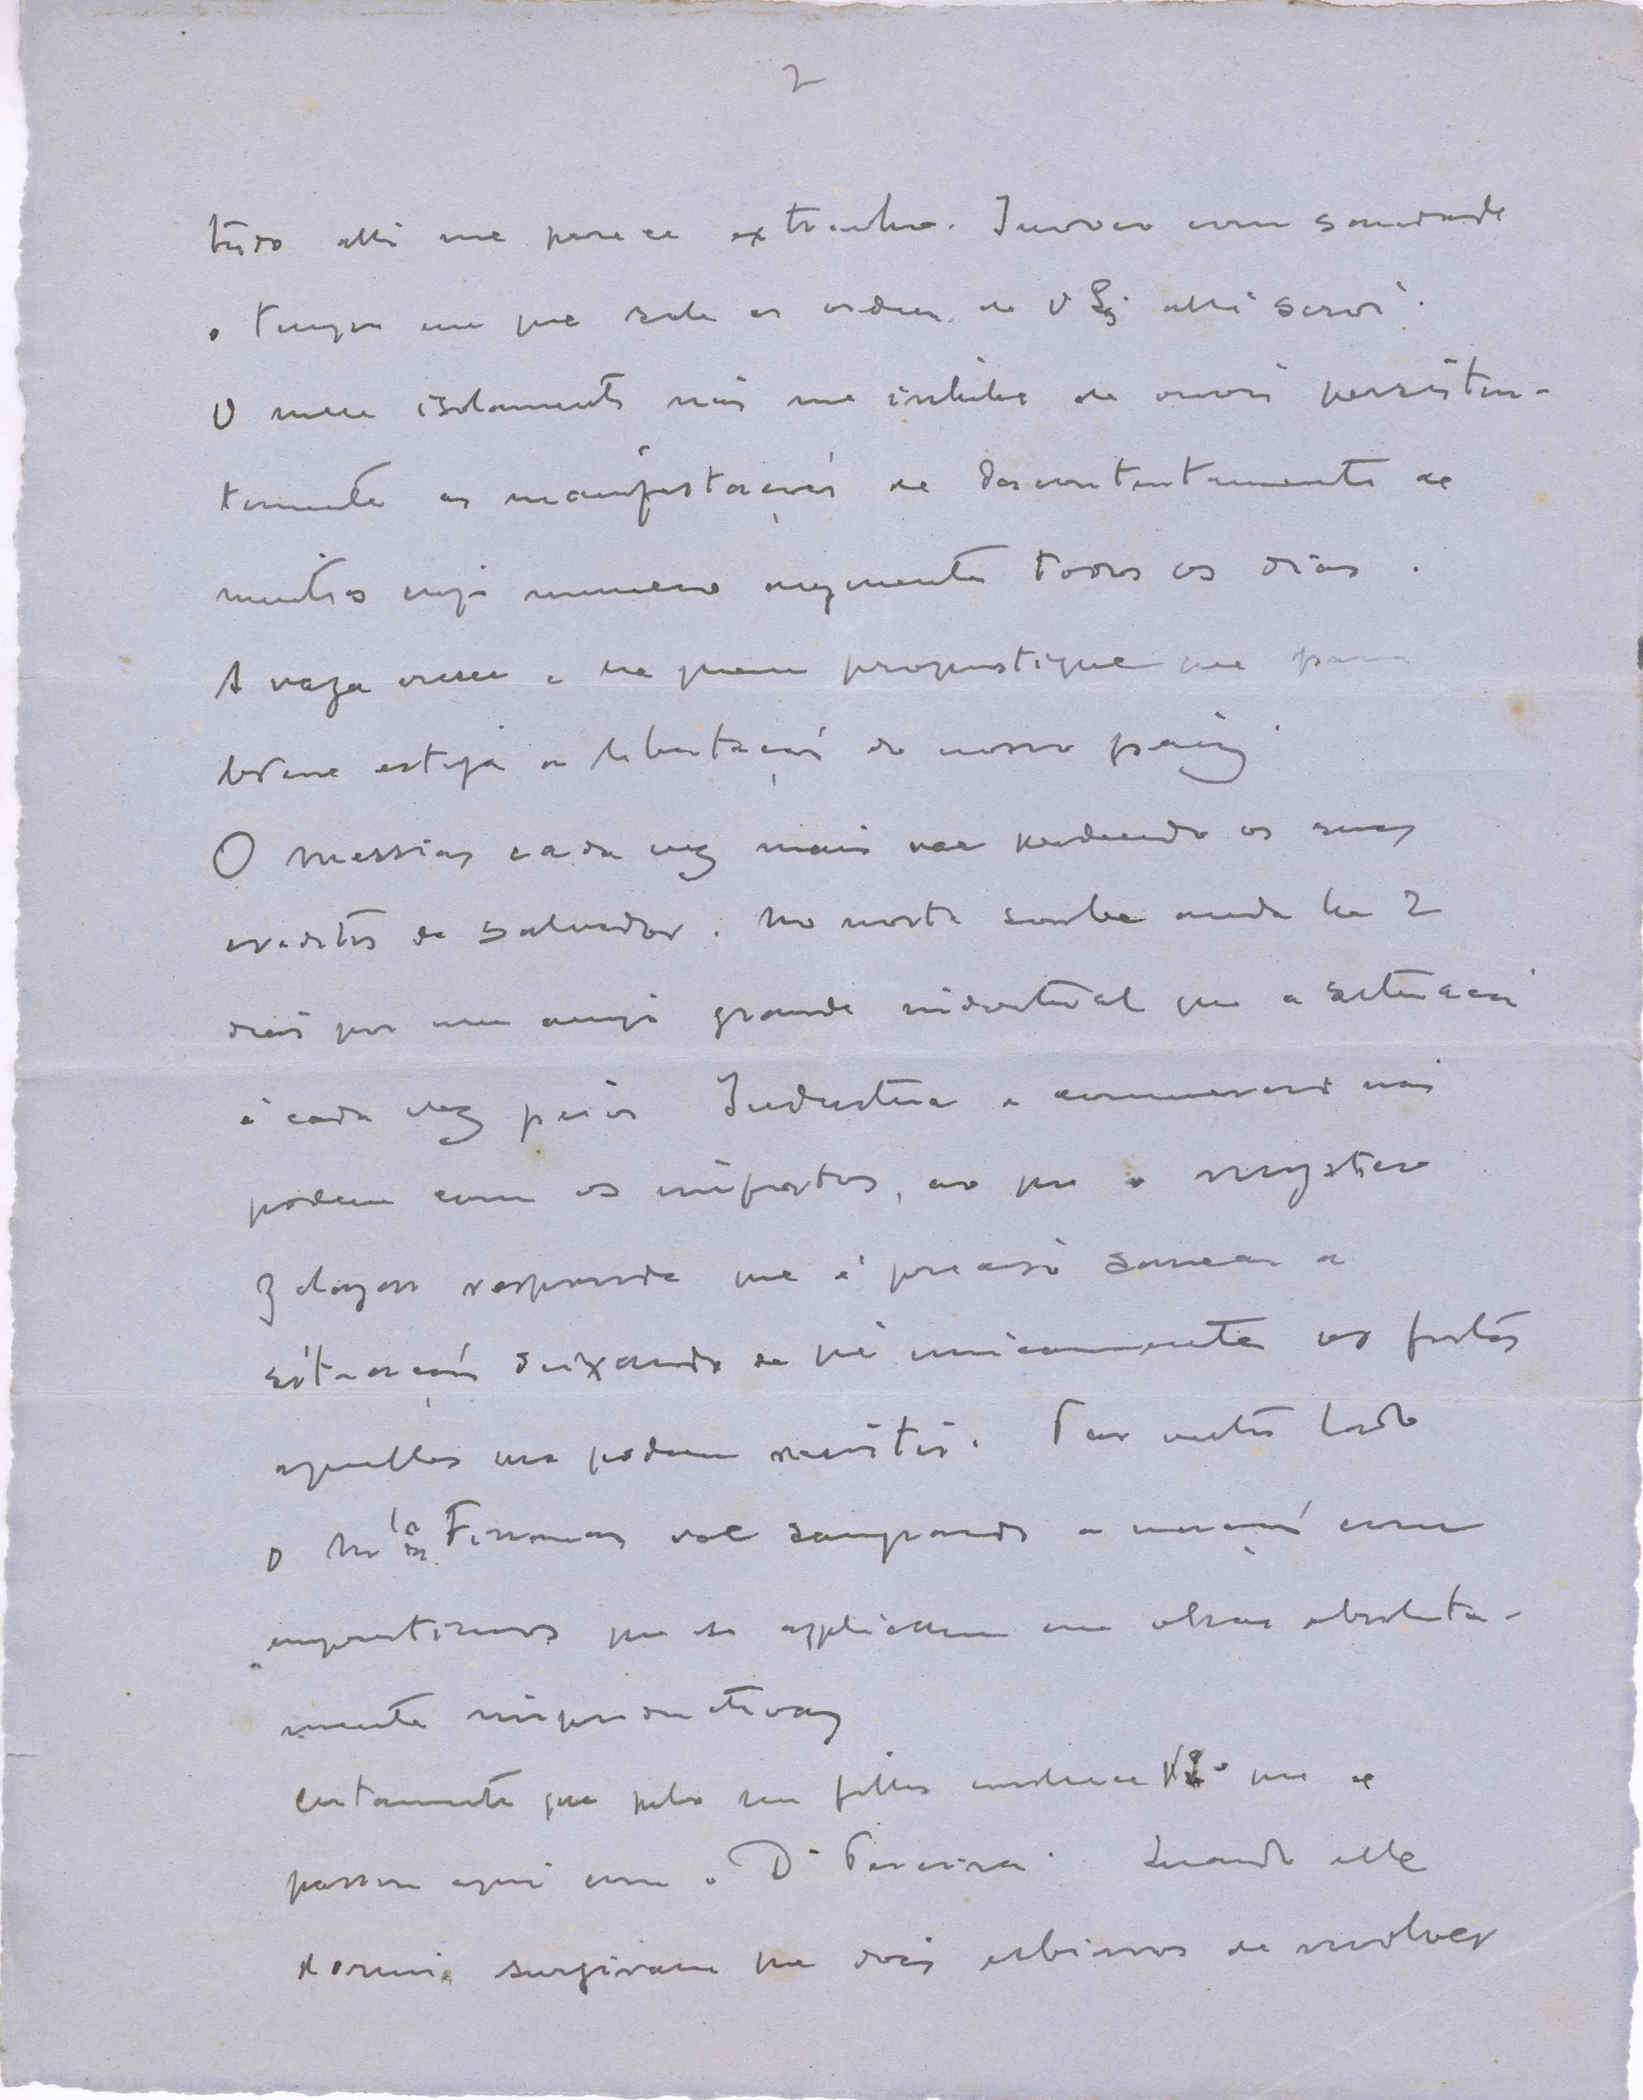 2
tudo alli me parece extranho. Invoco com saudade
o tempo em que sob as ordens de V Exª alli servi.
O meu isolamento não me inhibe de ouvir persisten-
temente as manifestações de descontentamento de
muitos cujo numero augmenta todos os dias.
A vaga cresce e ha quem prognostique que para
breve esteja a libertação do nosso paiz.
O Messias cada vez mais vae perdendo os seus
creditos de salvador. No norte soube ainda ha 2
dias por um amigo grande industrial que a situação
é cada vez peior Industria e commercio não
podem com os impostos, ao que o
responde que é preciso sanear a
situação deixando de pé unicamente os fortes
aquelles que podem resistir. Por outro lado
o das Finanças vae sangrando a nação com
emprestimos que se applicam em obras absoluta-
mente improductivas
Certamente que pelo seu filho conhece V Exª que se
passou aqui com o Dr Pereira. Quando elle
dormia surgiram-lhe dois esbirros de revolver